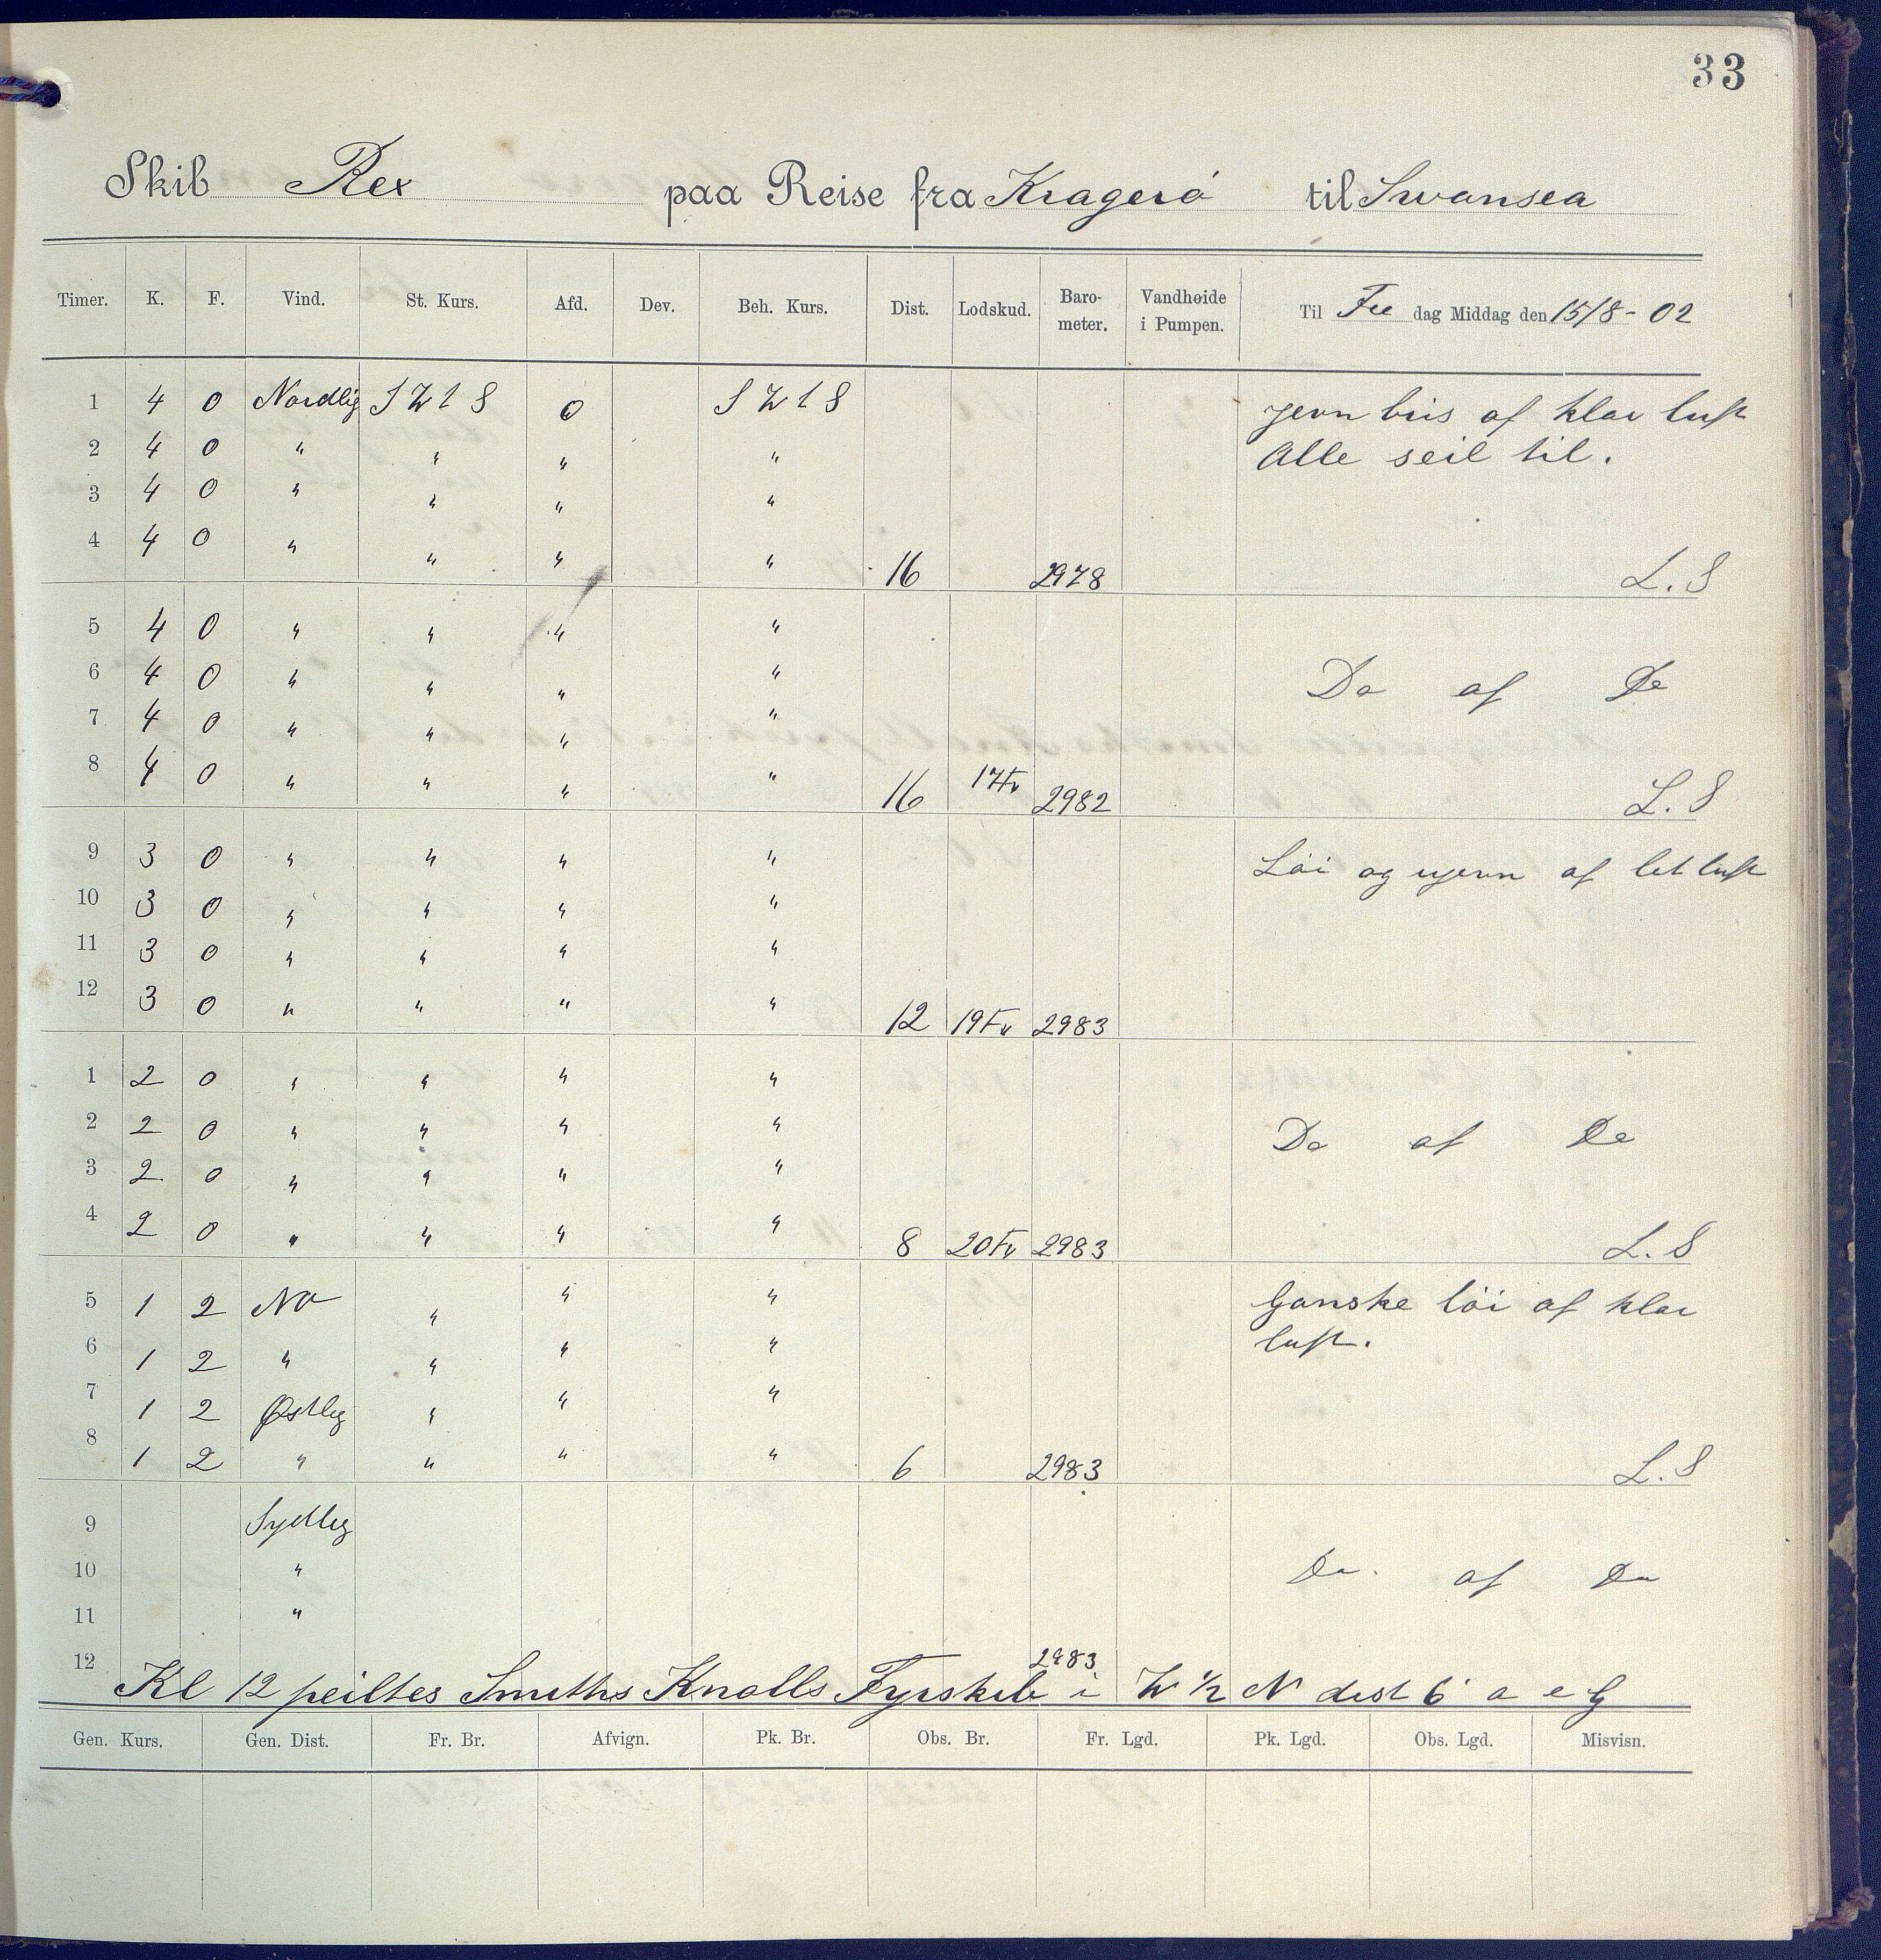 33
Skib Rex paa Reise fra Kragerö til Swansea
Timer. K. F. Vind. St. Kurs. Afd. Dev. Beh. Kurs. Dist. Lodskud. Baro-meter. Vandhøide i Pumpen. Til Fre dag Middag den 15/8 - 02
1 4 0 Nordlig S W t S 0 S W t S jevn bris af klar luft
2 4 0 " " " " Alle seil til.
3 4 0 " " " "
4 4 0 " " " " 16 2978 L. S
5 4 0 " " " "
6 4 0 " " " " Do af Do
7 4 0 " " " "
8 4 0 " " " " 16 17 Fv 2982 L. S
9 3 0 " " " " Löi og ujevn af let luft
10 3 0 " " " "
11 3 0 " " " "
12 3 0 " " " " 12 19 Fv 2983
1 2 0 " " " "
2 2 0 " " " " Do af Do
3 2 0 " " " "
4 2 0 " " " " 8 20 Fv 2983 L. S
5 1 2 NO " " " Ganske löi af klar
6 1 2 " " " " luft.
7 1 2 Østlig " " "
8 1 2 " " " " 6 2983 L. S
9 Sydlig
10 " Do. af Do
11 "
12 2983
Kl 12 peiltes Smiths Knolls Fyrskib i W 1/2 N dist 6' a e G
Gen. Kurs. Gen. Dist. Fr. Br. Afvign. Pk. Br. Obs. Br. Fr. Lgd. Pk. Lgd. Obs. Lgd. Misvisn.